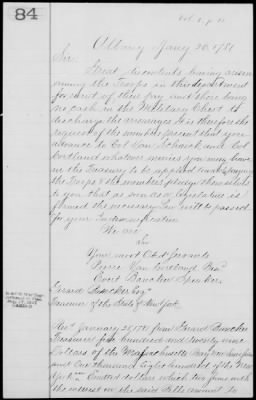 84
Albany Jany 20, 1781
Sir,
Great discontents having arisen
among the Troops in this department
for want of their pay and there being
no cash in the Military Chest to
discharge the arrearages It is therefore the
request of the members present that you
advance to Col Van Schaick and Col
Cortland whatever monies you may have
in the Treasury to be applied towards paying
the Troops & the members pledge themselves
to you that as soon as a legislature is
formed the necessary Law will be passed
for your Indemnification
We are
Sir
Your most Obdt Servants
Pierre Van Cortland
Evert Bancker Speaker
Gerard Bancker Esqr
Treasurer of the State of New York
Recd January 25 1781 from Gerard Bancker
Treasurer four hundred and twenty nine
Dollars of the Massachusetts Bay
and One thousand Eight hundred of the New
York Dollars which two sums with
the interest on the said Bills amount to